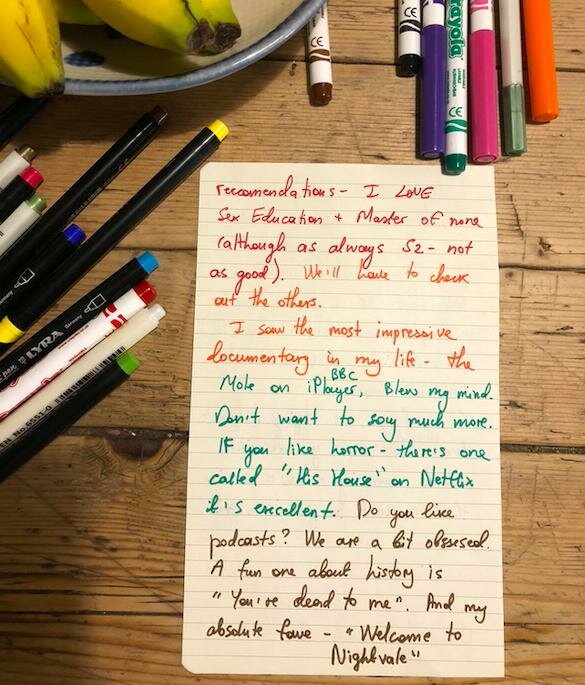 CE
CE
Crayola
CE
Germany
LYRA
Germany
EN No 6551-0
recomendations - I LOVE
Sex Education + Master of none
(although as always S2 - not
as good). We'll have to check
out the others.
I saw the most impressive
documentary in my life - the
Mole on BBC iPlayer, Blew my mind.
Don't want to say much more.
If you like horror - there's one
called "His House" on Netflix
it's excellent. Do you like
podcasts? We are a bit obssesed.
A fun one about history is
"You're dead to me". And my
absolute fave - "Welcome to
Nightvale"